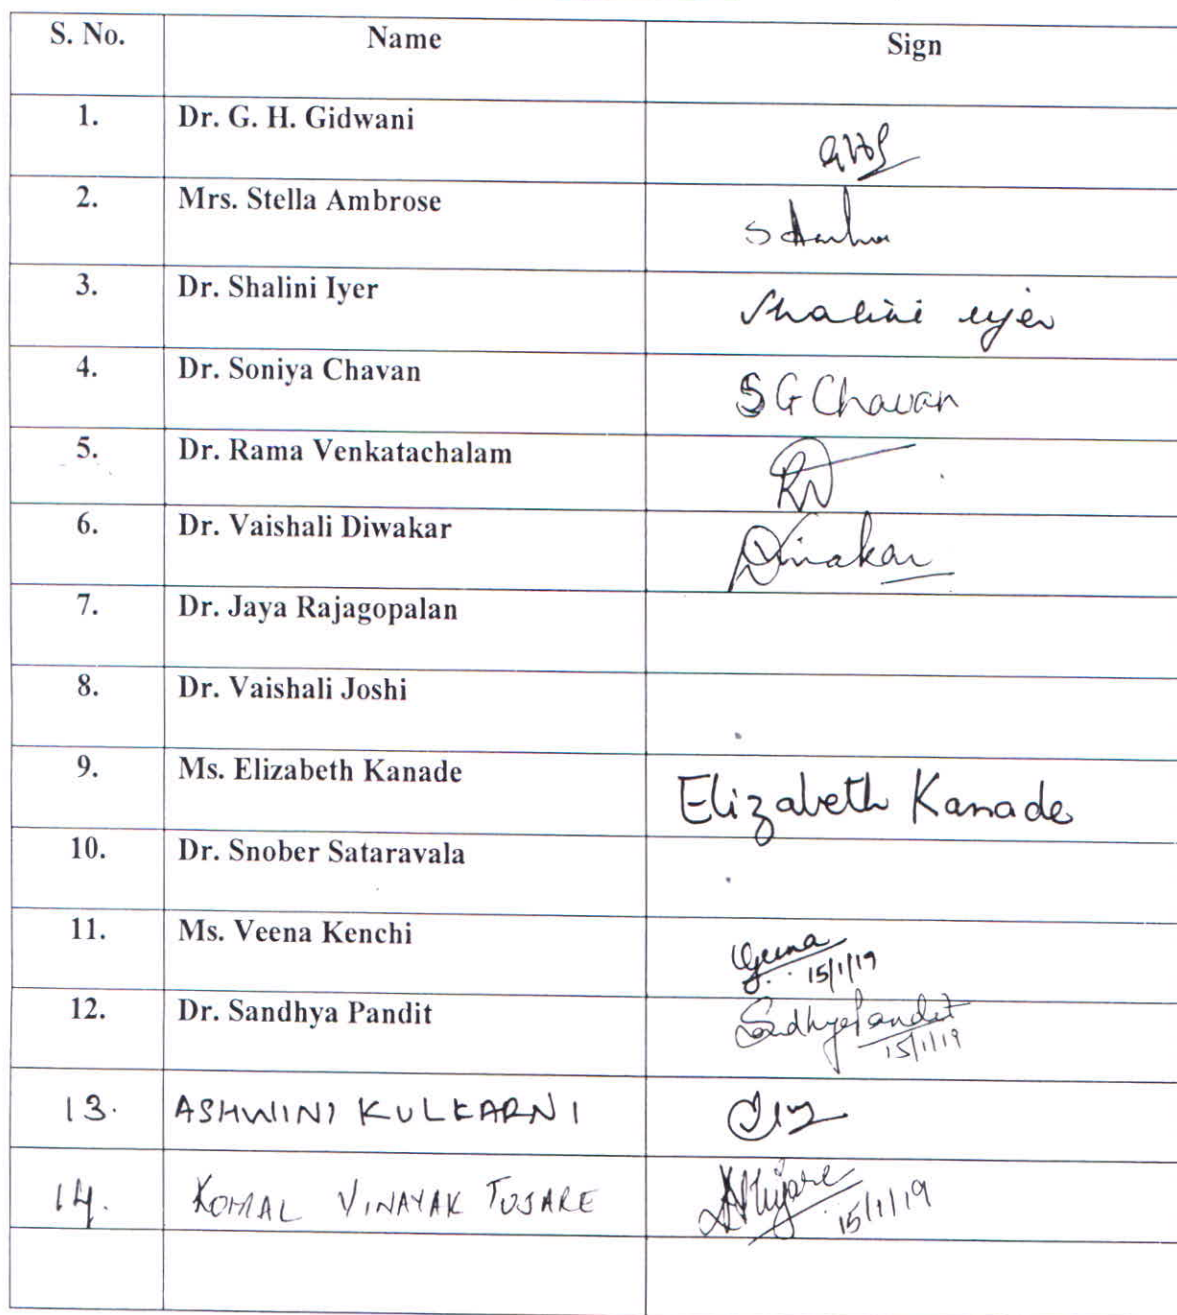 S. No. Name Sign
1. Dr. G. H. Gidwani
2. Mrs. Stella Ambrose
3. Dr. Shalini Iyer Shalini iyer
4. Dr. Soniya Chavan S G Chavan
5. Dr. Rama Venkatachalam
6. Dr. Vaishali Diwakar Diwakar
7. Dr. Jaya Rajagopalan
8. Dr. Vaishali Joshi
9. Ms. Elizabeth Kanade Elizabeth Kanade
10. Dr. Snober Sataravala
11. Ms. Veena Kenchi Veena
15/1/19
12. Dr. Sandhya Pandit Sandhya Pandit
15/1/19
13. ASHWINI KULKARNI
14. KOMAL VINAYAK TUSARE
15/1/19